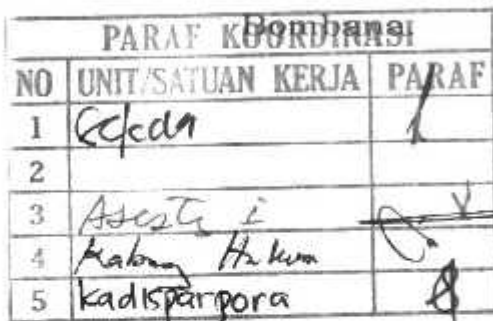 Bombana.
PARAF KOORDINASI
NO UNIT/SATUAN KERJA PARAF
1 Sekda
2
3 Asisten i
4 Kabag Hukum
5 kadisparpora